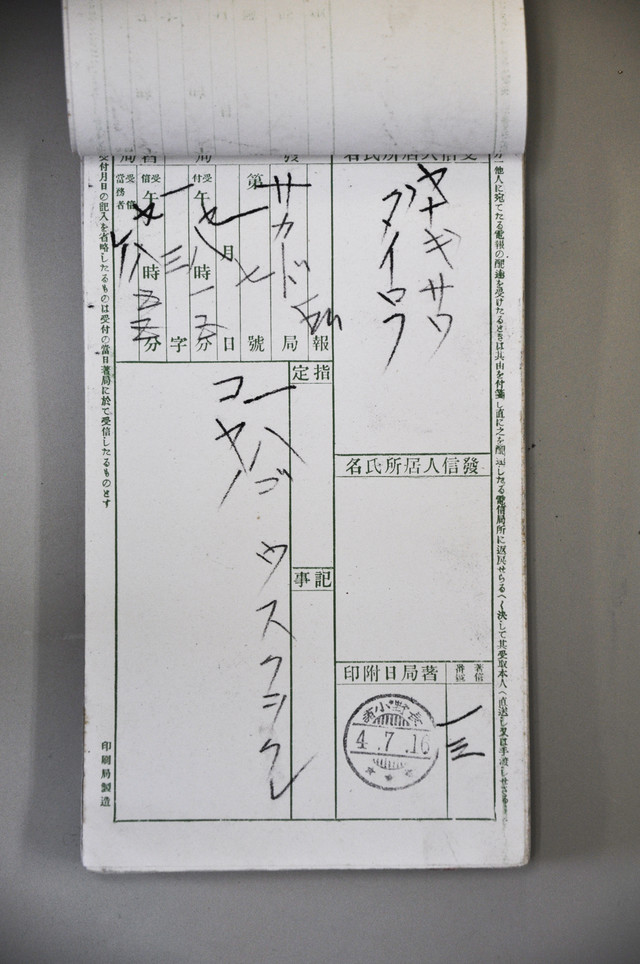 他人に宛てたる電報の配達を受けたるときは其由を付箋し直に之を配達したる電信局所に返戻せらるべく決して其受取本人へ直送し又は手渡しせざる
受信人居所氏名
ヤナギサワ
ダイロフ
發信人居所氏名
著局日附印
著信番號
一三
長野小諸
4.7.16
報
局
サカード
第
號
七
月
日
受付
午
八時一分
三
字
受信
午
時五分
當務者
指定
記事
一ハゴ ウスクシクレ
コヤノ
受付月日の記入を省略したるものは受付の當日著局に於て受信したるものとす
印刷局製造